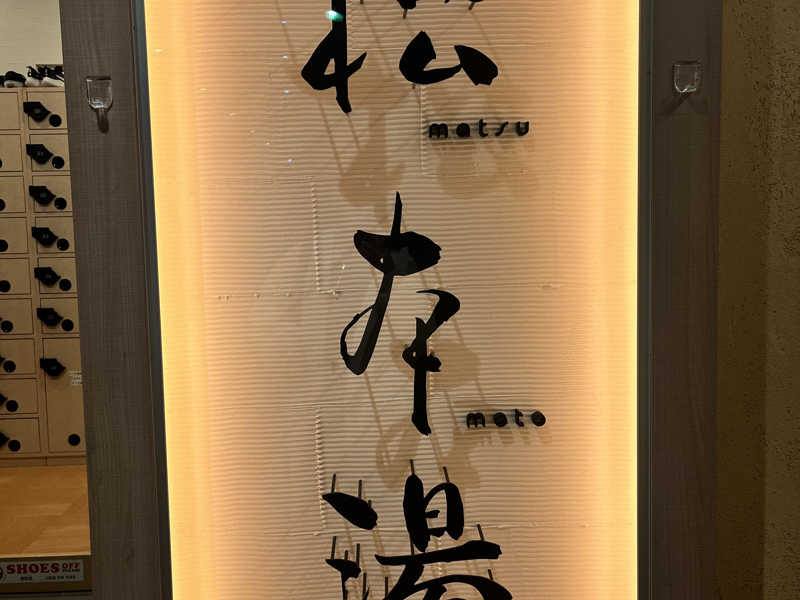 松
matsu
本
moto
湯
SHOES OFF